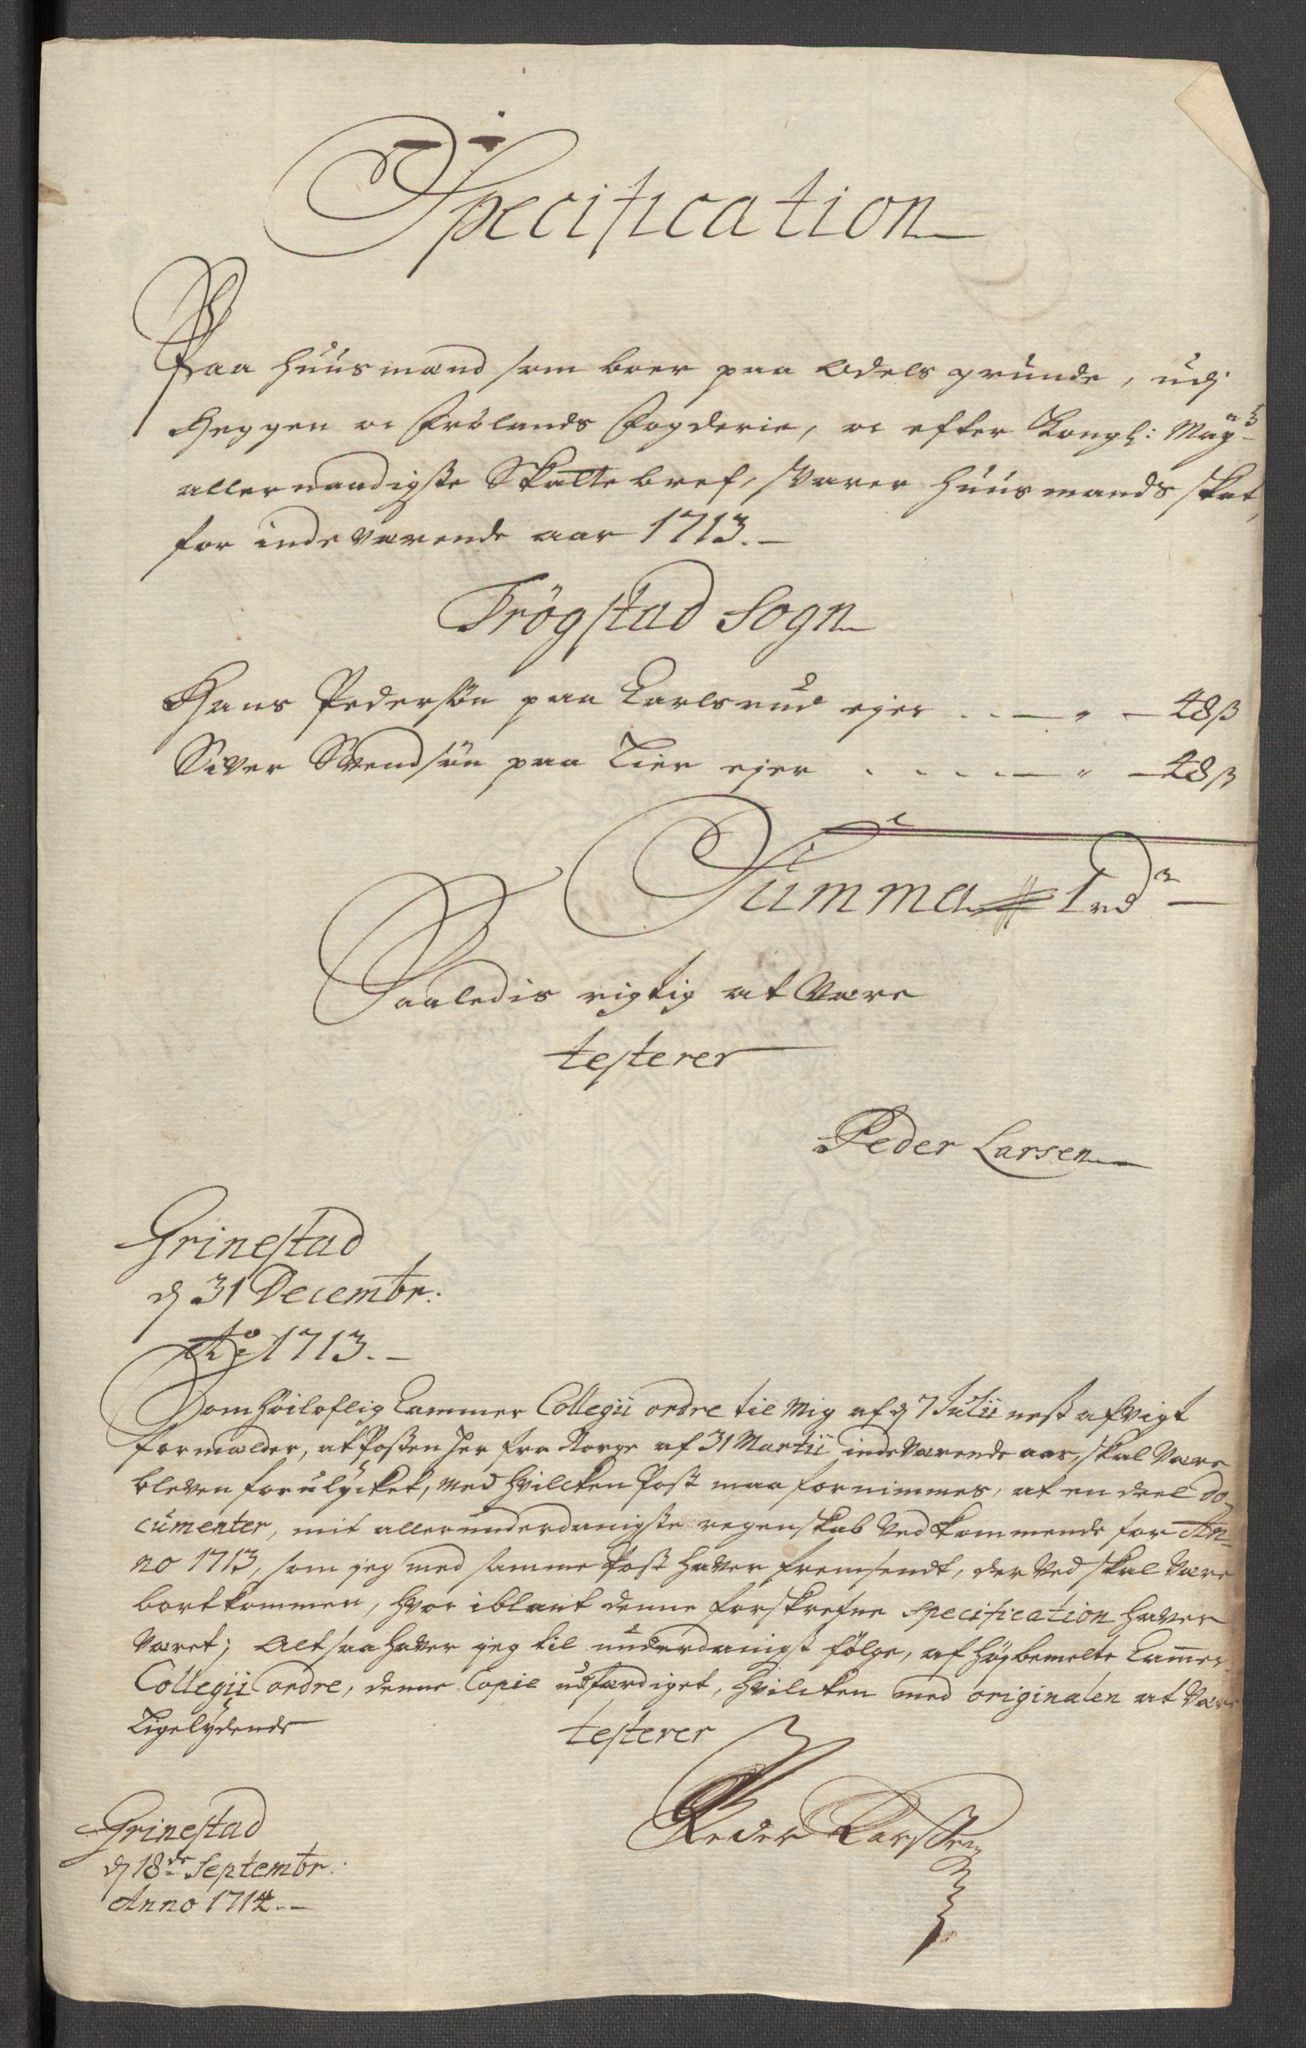 Specification
Paa Huusmænd som boer paa Odels grunde, udj
Heggen oc Frølands Fogderie, oc efter Kongl: Mayts
allernaadigste Skatte bref, svarer Huusmands skat,
for indeværende aar 1713.
Trögstad Sogn
Hans Pedersön paa Carlsrud ejer . . — " — 48 ß
Siver Svendsön paa Lier ejer . . . . — " — 48 ß
Summa 1 rdr —
Saaledis rigtig at være
testerer
Peder Larsen
Grinestad
d 31 Decembr:
Ao 1713.
Som höiloflig Cammer Collegii ordre til mig af d 7 Julii nest afvigt
formælder, at Posten her fra Norge af 31 Martii indeværende aar, skal være
bleven forulycket, med hvilcken Post maa fornimmes, at en deel do-
cumenter, mit allerunderdanigste regenskab vedkommende for An-
no 1713, som jeg med samme Post haver fremsendt, derved skal være
bortkommen, hvor iblant denne forskrefne specification haver
været; Altsaa haver jeg til underdanigst følge, af høybemelte Cammer
Collegii ordre, denne Copie udfærdiget, hvilcken med originalen at være
Ligelydende testerer
Peder Larssen
Grinestad
d 18de Septembr:
Anno 1714.